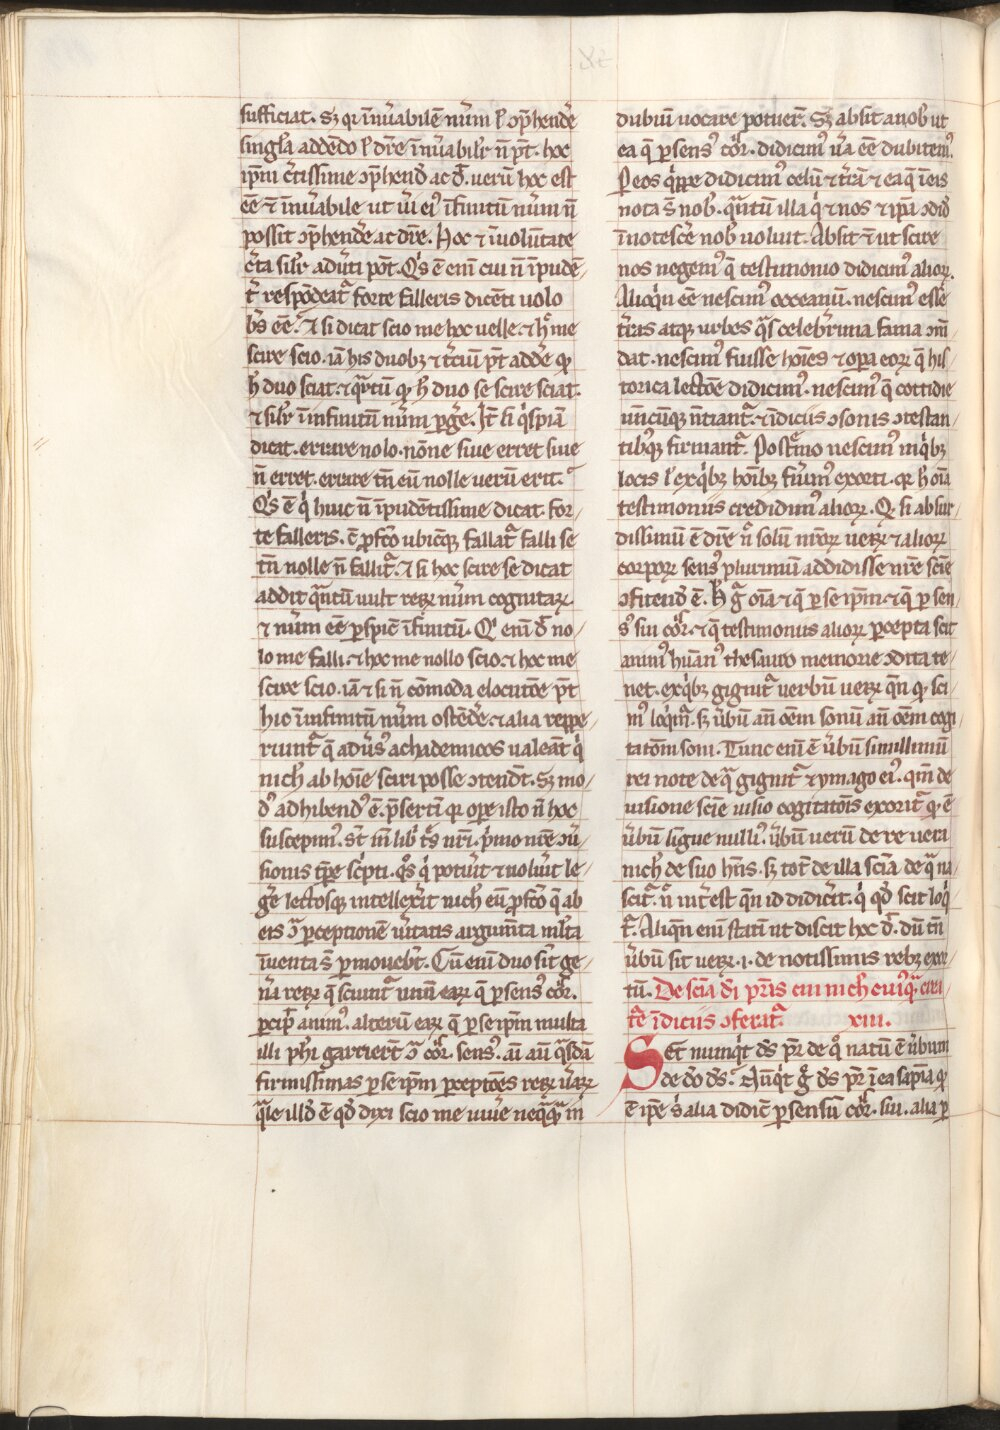 sufficiat. Sꝫ qꝛ īnu̓abilē nu̓m ł ꝯp̄hendꝰe
singl̓a addēdo ł dr̄e īnu̓abilꝰr n̄ p̄t. hoc
ip̄m c̓tissime ꝯp̄hend̓ ac d̄r. uerū hoc est
eē ⁊ īnu̓abile ut u̓i eiꝰ īfinitū nu̓m n̄
possit ꝯp̄hend̓e ac dr̄e. Hoc ⁊ ī uolūtate
c̓ta silr̓ adu̓ti pōt. Qꝰs ē eni cui n̄ īpudē
t̓ respōdeat᷑ forte falleris dicēti uolo
b̓s eē. ⁊ si dicat scio me hoc uelle ⁊ h̄ me
scire scio. iā his duobꝫ ⁊ t̓ciū p̄t add̓e ꝙ
h̄ duo sciat. ⁊ qᷓrtū ꝙ h̄ duo se scire sciat.
⁊ silr̓ ī infinitū nu̓m ꝑg̓e. It̄ si qͥspiā
dicat. errare nolo. nōne siue erret siue
n̄ erret. errare tn̄ eū nolle uerū erit.
Qͥs ē qͥ huic n̄ īpudētissime dicat. for
te falleris. c̄ ꝓfc̄o ubicūqꝫ fallat᷑ falli se
tn̄ nolle n̄ fallit᷑. ⁊ si hoc scire se dicat
addit qᷓntū uult reꝝ nu̓m cognitaꝝ
⁊ nu̓m eē ꝑspic̄ īfinitū. Qͥ eni d̄r no
lo me falli. ⁊ hoc me nollo scio. ⁊ hoc me
scire scio. iā ⁊ si n̄ cōmoda elocutōe p̄t
hic īinfinitū nu̓m ostēd̓e. ⁊ alia reppe
riunt᷑ q̄ adu̓sꝰ achademicos ualeāt qͥ
nich̓ ab hoīe sciri posse ꝯtendūt. Sꝫ mo
dꝰ adhibendꝰ ē. p̄serti qꝛ oꝑe isto n̄ hoc
suscepimꝰ. st̄ tn̄ lib̓ t̓s nr̄i. p̓mo nr̄e ꝯu̓
sionis tꝑe sc̓pti. qͦs qͥ potu̓it ⁊ uolu̓it le
g̓e lectosqꝫ intellex̓it nich̓ eū ꝓfc̄o q̄ ab
eis ꝯᷓ ꝑceptionē u̓itatis argum̄ta ml̓ta
īuenta s̄ ꝑmouebūt. Cū eni duo sīt ge
n̄a reꝝ q̄ sciunt᷑ unū eaꝝ q̄ ꝑ sensꝰ cor̓.
ꝑcip̓ animꝰ. alterū eaꝝ q̄ ꝑ se ip̄m multa
illi ph̓i garrier̄t ꝯᷓ cor̓. sensꝰ. aū aū qᷓsdā
firmissimas ꝑ se ip̄m ꝑceptōes reꝝ u̓aꝝ
qᷓle illd̓ ē qd̓ dixi scio me uiu̓e neqᷓqᷓ ī
dubiū uocare potuer̄. Sꝫ absit a nob̓ ut
ea q̄ ꝑ sensꝰ cor̓. didicimꝰ u̓a eē dubitemꝰ.
Ꝑ eos qͥppe didicimꝰ celū ⁊ t̓rā ⁊ ea q̄ ī eis
nota s̄ nob̓. qᷓntū illa qͥ ⁊ nos ⁊ ip̄a ꝯdid̓
īnotesc̓e nob̓ uoluit. Absit ⁊ ut scire
nos negemꝰ q̄ testimonio didicimꝰ alioꝝ.
Alioqͥn eē nescimꝰ occeanū. nescimꝰ esse
t̓ras atqꝫ urbes qᷓs celeb̓rima fama ꝯm̄
dat. nescimꝰ fuisse hoīes ⁊ oꝑa eoꝝ q̄ his
torica lectōe didicimꝰ. nescimꝰ q̄ cottidie
undcūqꝫ nūtiant᷑. ⁊ īdiciis ꝯsonis ꝯtestan
tibꝰqꝫ firmant᷑. Postᷓmo nescimꝰ in qͥbꝫ
locis ł ex qͥbꝫ hoībꝫ fu̓imꝰ exorti. qꝛ h̄ oīa
testimoniis credidimꝰ alioꝝ. Q si absur
dissimū ē dr̄e n̄ solū nr̄oꝝ ueꝝ ⁊ alioꝝ
corpoꝝ sensꝰ plurimū addidisse nr̄e scīe
ꝯfitend̓ ē. H̄ gͦ oīa ⁊ q̄ ꝑ se ip̄m. ⁊ q̄ ꝑ sen
sꝰ sui cor̓. ⁊ q̄ testimoniis alioꝝ ꝑcepta scit
animꝰ hūanꝰ thesauro memorie ꝯdita te
net. ex qͥbꝫ gignit᷑ uerbū ueꝝ qn̄ qꝙ sci
mꝰ loqͥm̄. sꝫ u̓bū an̄ oēm sonū an̄ oēm cogi
tatōm soni. Tunc eni ē u̓bū simillimū
rei note de qᷓ gignit᷑ ⁊ ymago eiꝰ. qm̄ de
uisione scīe uisio cogitatōīs exorit᷑ qꝙ ē
u̓bū ligue nulliꝰ. u̓bū uerū de re uera
nich̓ de suo hn̄s. sꝫ totū de illa scīa de qᷓ na
scit᷑. n̄ int̓est qn̄ id didic̓it. qͥ qd̓ scit loqͥ
t᷑. Aliqn̄ eni statī ut discit hoc d̄r. dū tn̄
u̓bū sit ueꝝ .i. de notissimis rebꝫ exor
tū. De sciā dī pr̄is cui nich̓ euīqᷓ crea
t̓e īdiciis ꝯferat᷑. xiii.
Set nunqͥt ds̄ pr̄ de qͦ natū ē u̓bum
de dō ds̄. Nūqͥt gͦ ds̄ pr̄ ī ea sapīa qꝙ
ē ip̄e s̓ alia didic̓ ꝑ sensū cor̓. sui. alia ꝑ